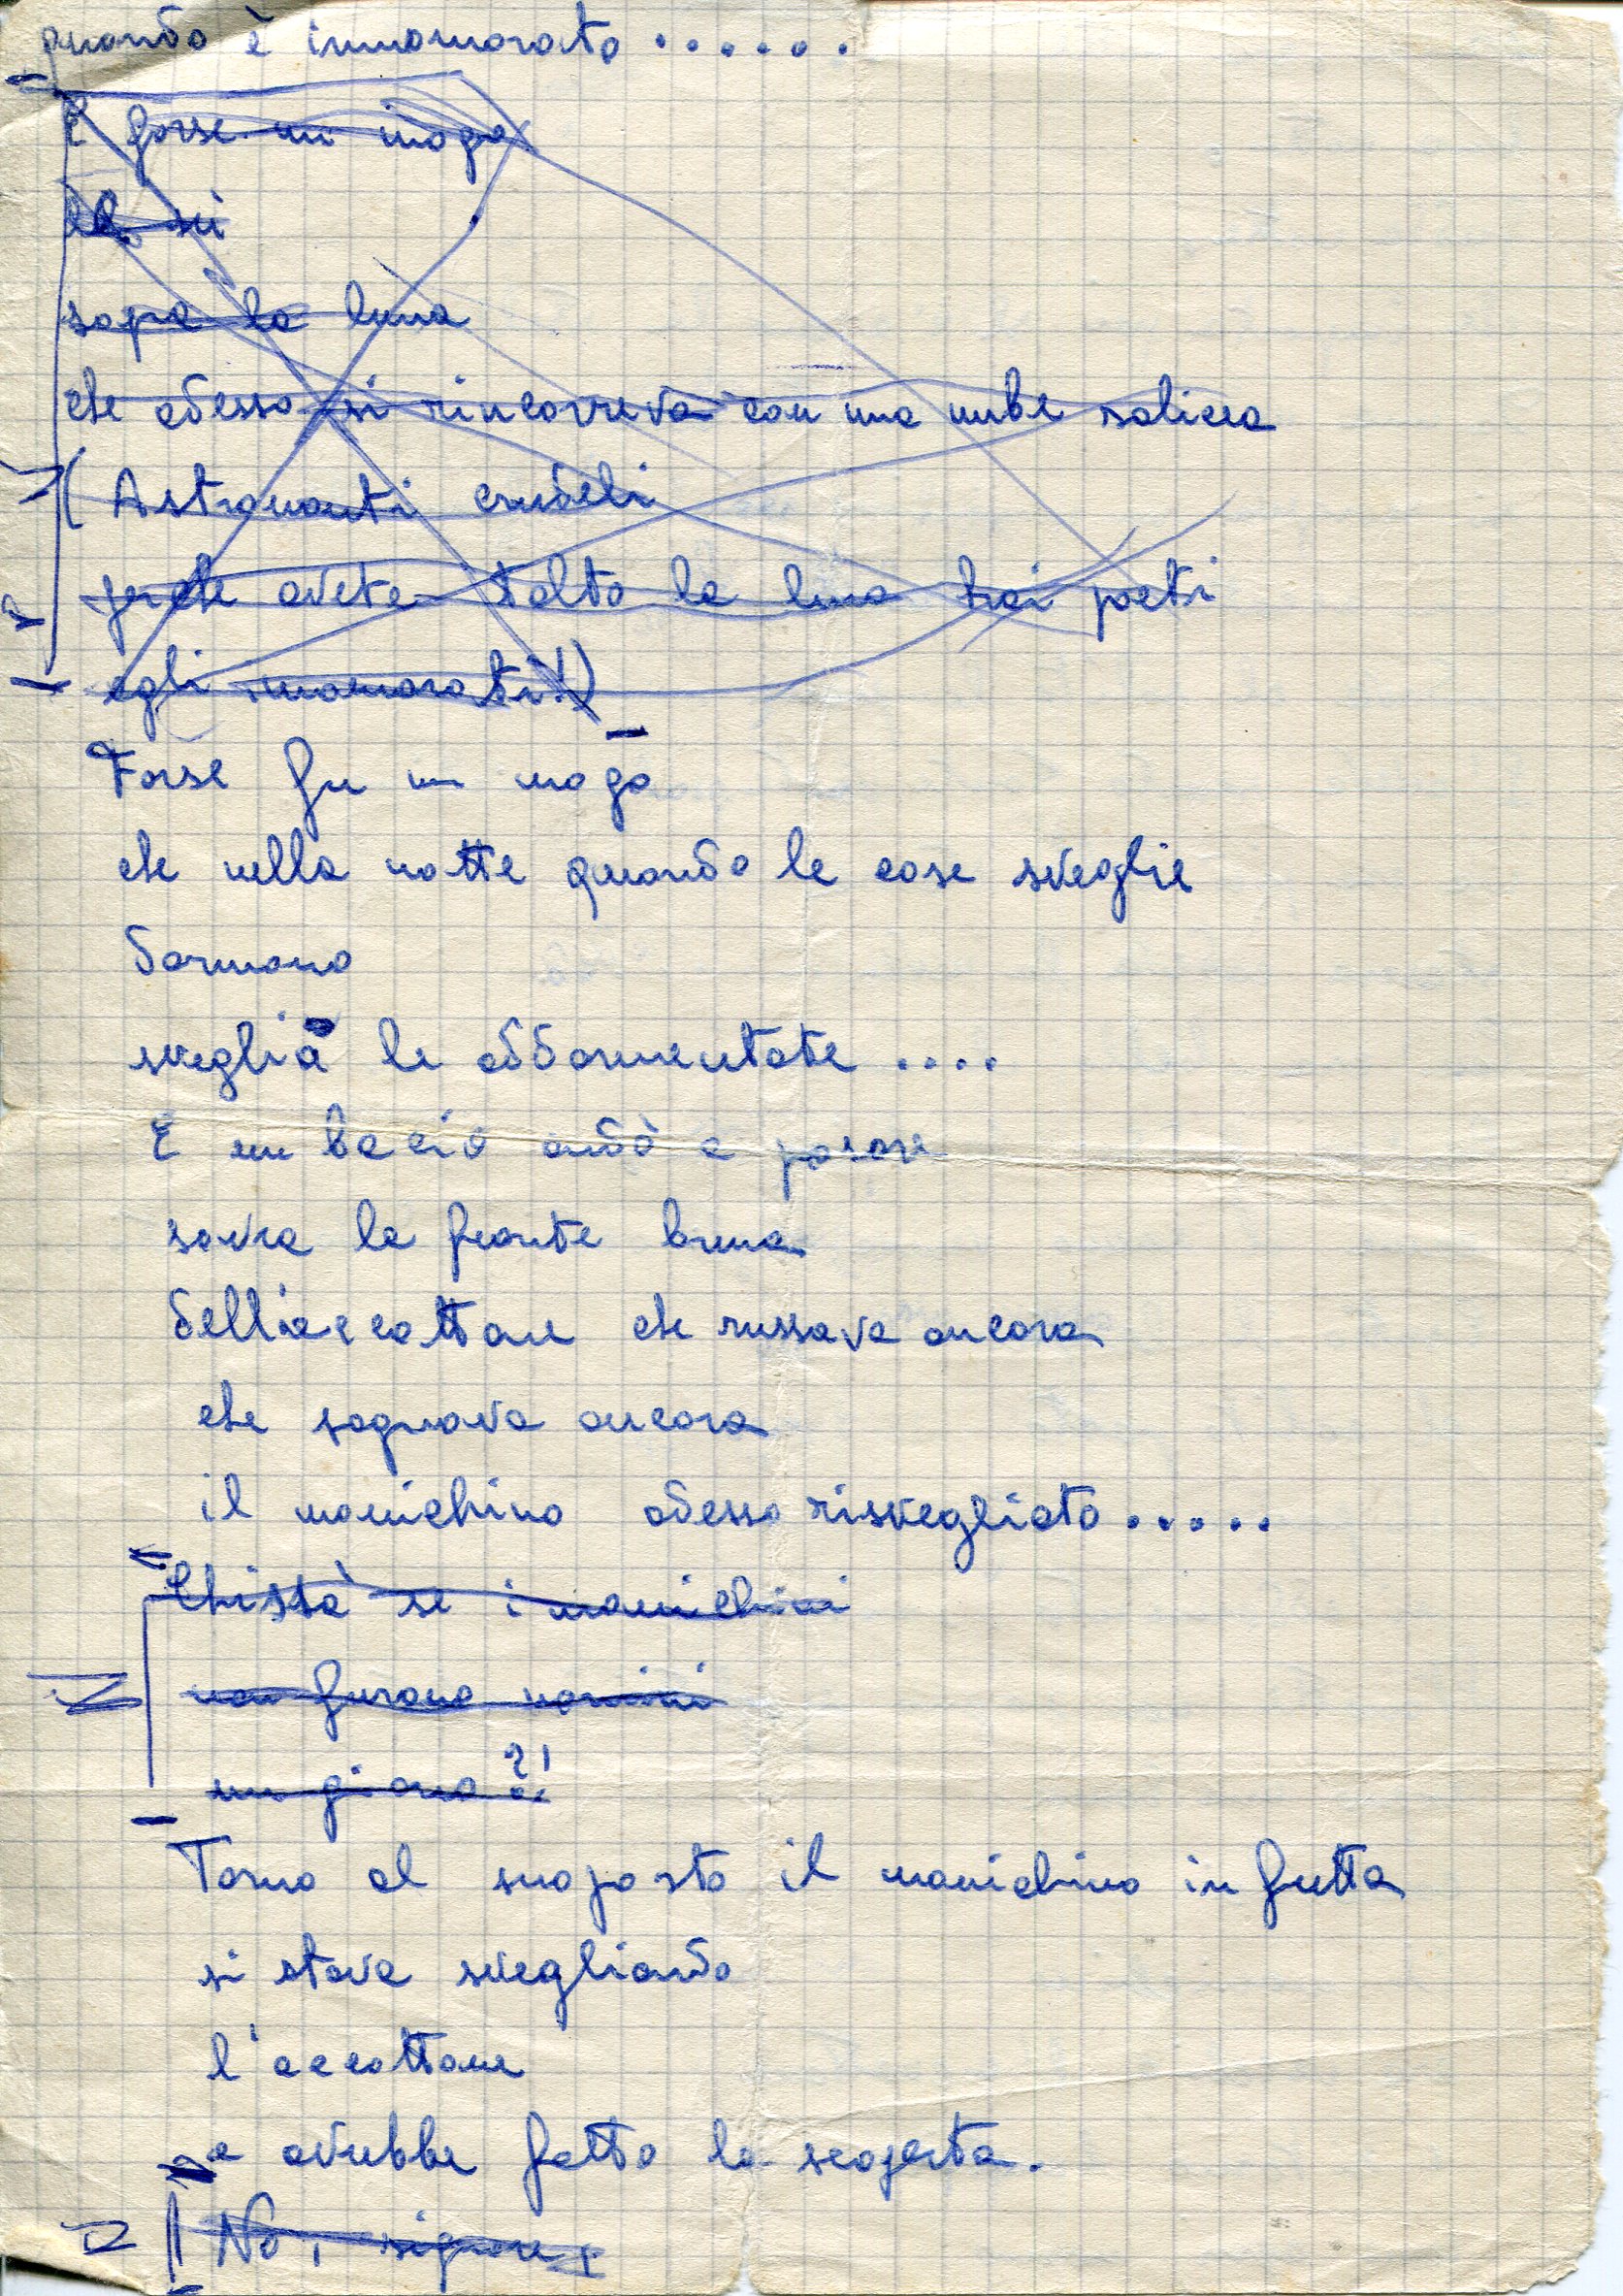 quando è innamorato ......
E forse un mago
sopra la luna
che adesso si rincorreva con una nube solicea
( Astronauti crudeli
perché avete tolto la luna trai poeti
egli innamorati!)
Forse fu un mago
che nella notte quando le cose sveglie
dormono
sveglia le addormentate ....
E un bacio andò a posare
sovra la fronte bruna
dell'accattone che russava ancora
che sognava ancora
il manichino adesso risvegliato .....
Chissà se i manichini
non furono uomini
un giorno?!
Torna al suo posto il manichino in fretta
si stava svegliando
l'accattone
e avrebbe fatto la scoperta.
No, signore,